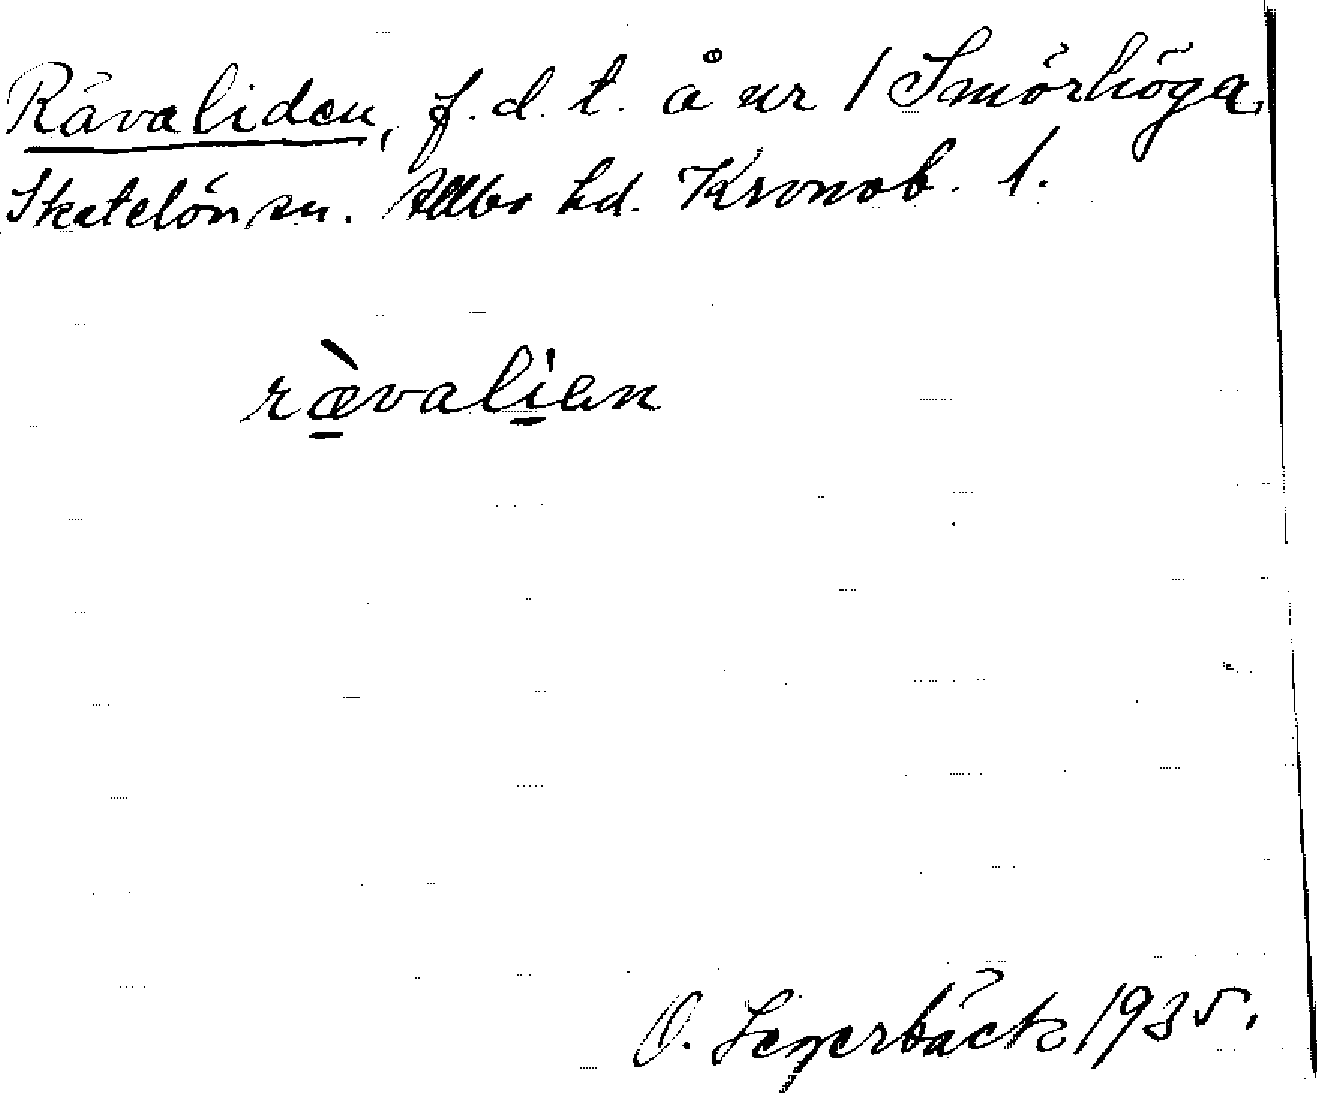 Rävaliden, f.d.t. å nr 1 Smörhöga,
Skatelöv sn. Allbo hd. Kronob. l.
rævalien
O. Segerbäck 1935.